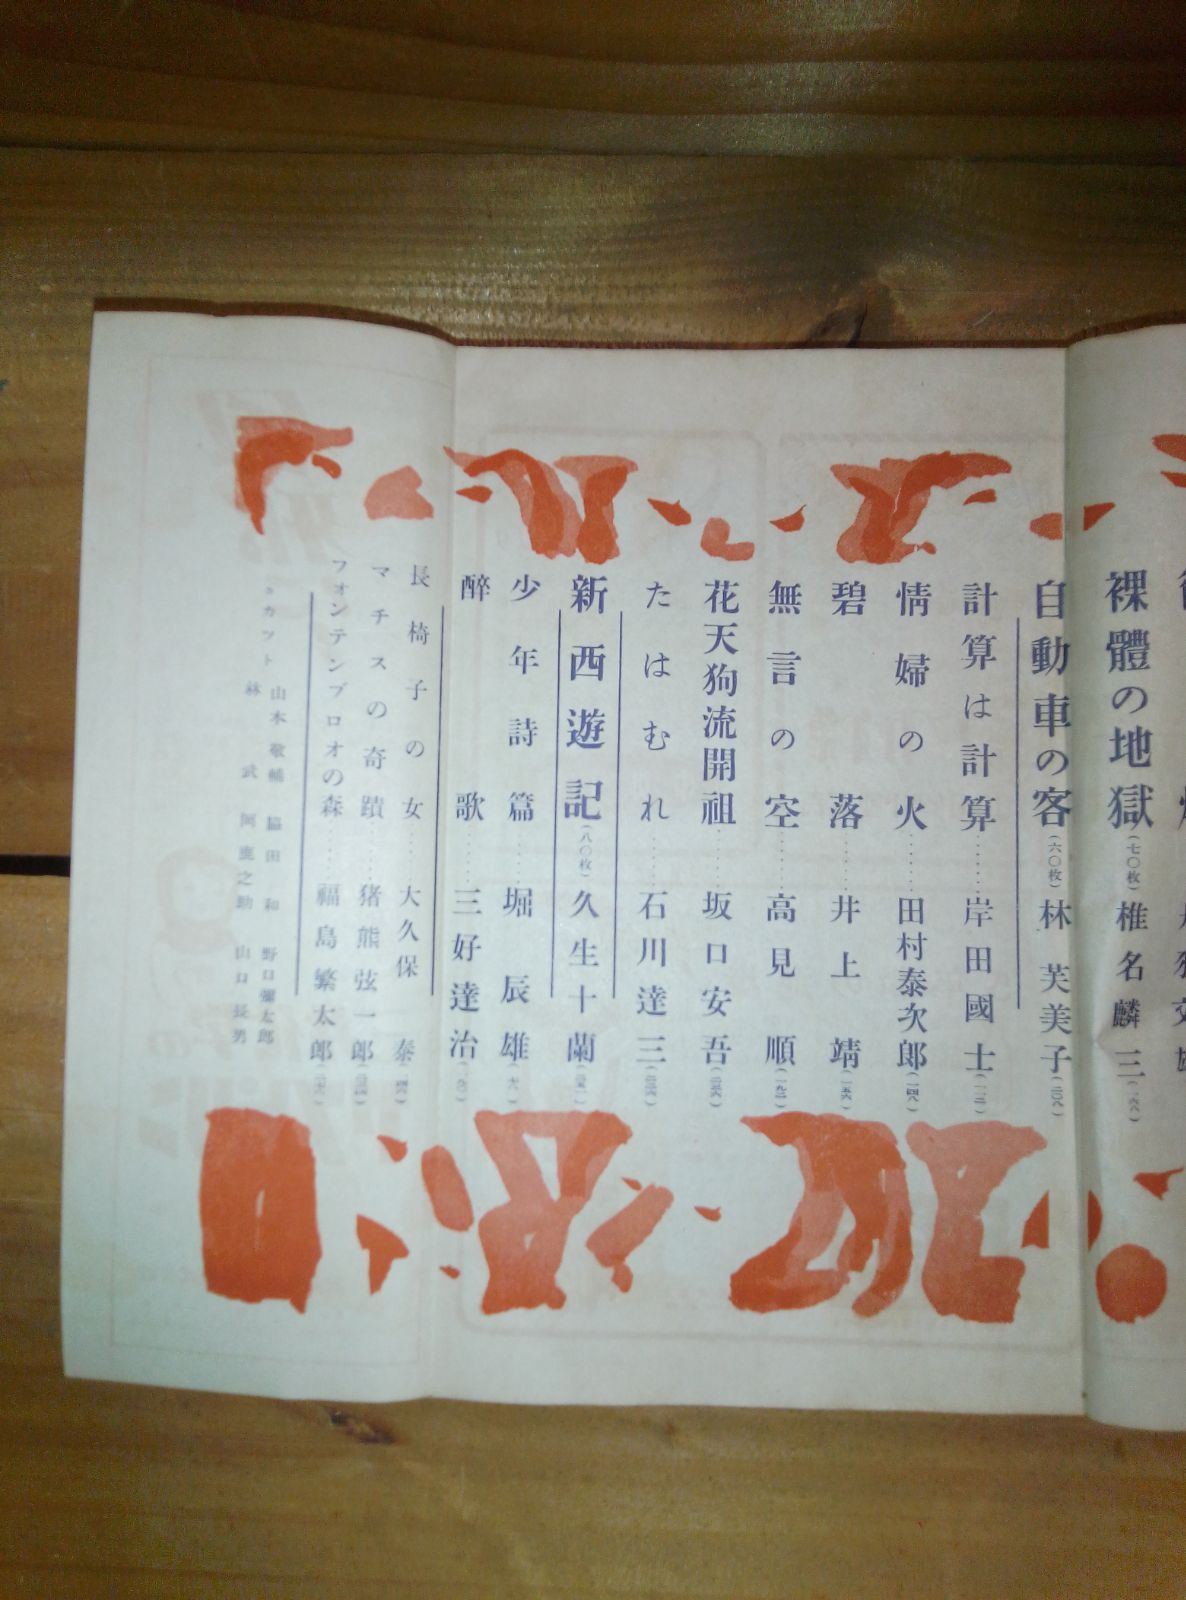 裸體の地獄(七〇枚)椎名麟三(一六八)
自動車の客(六〇枚)林芙美子(二〇八)
計算は計算……岸田國士
情婦の火……田村泰次郎(一四八)
碧落……井上靖(一五六)
無言の空……高見順(一九二)
花天狗流開祖……坂口安吾
たはむれ……石川達三
新西遊記(八〇枚)久生十蘭
少年詩篇……堀辰雄
醉歌……三好達治
長椅子の女……大久保泰
マチスの奇蹟……猪熊弦一郎
フォンテンブロオの森……福島繁太郎
カット 山本敬輔 脇田和 野口彌太郎
林武 岡鹿之助 山口長男